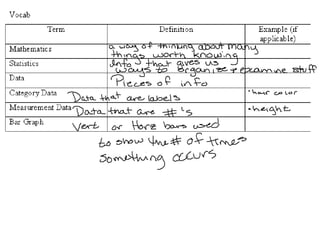 Vocab
Term Definition Example (if applicable)
Mathematics a way of thinking about many things worth knowing
Statistics Info that gives us ways to organize & examine stuff
Data Pieces of info
Category Data Data that are labels •hair color
Measurement Data Data that are #'s •height
Bar Graph Vert or Horz bars used
to show the # of times
something occurs